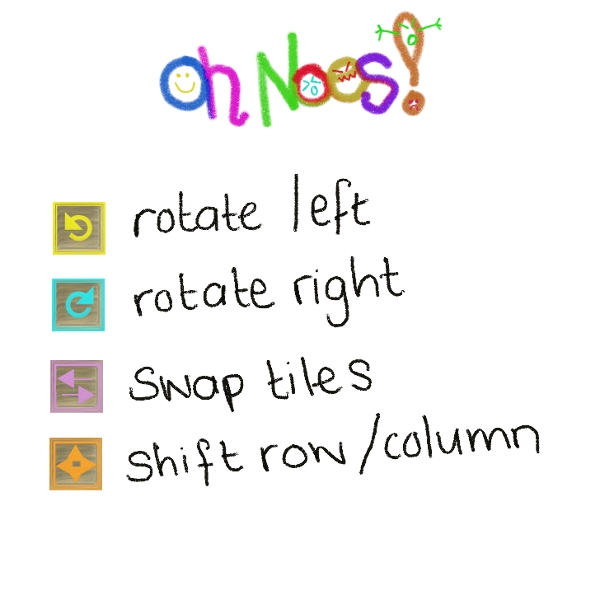 Oh Noes!
rotate left
rotate right
swap tiles
shift row/column